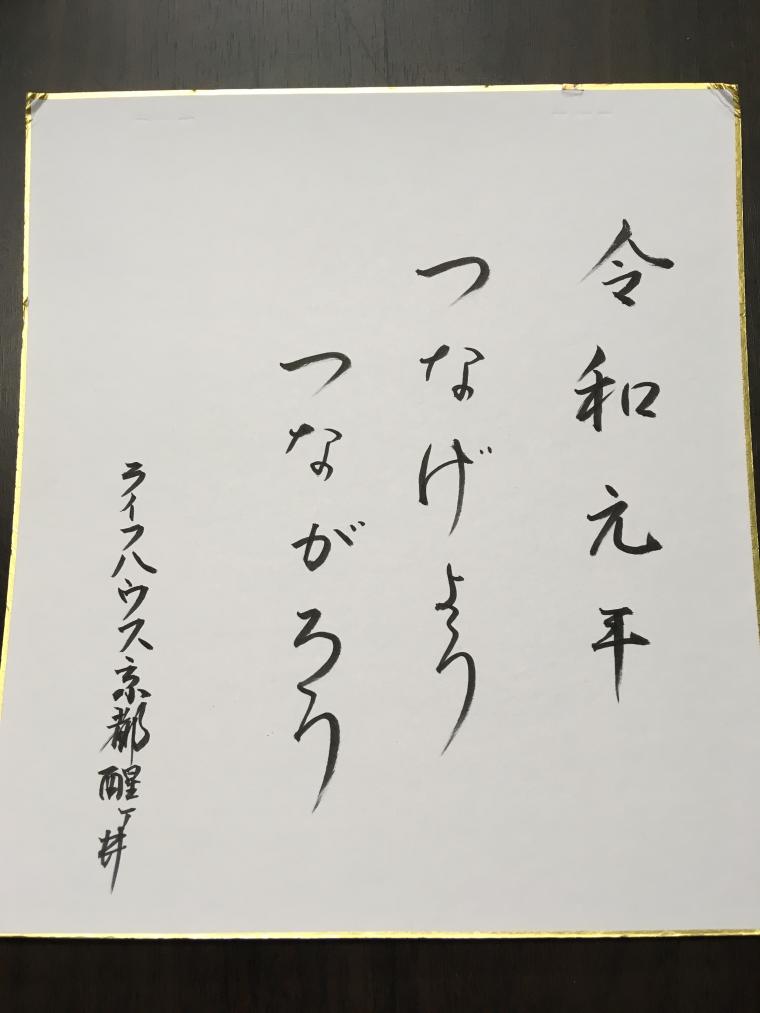 令和元年
つなげよう
つながろう
ライフハウス京都醒ヶ井